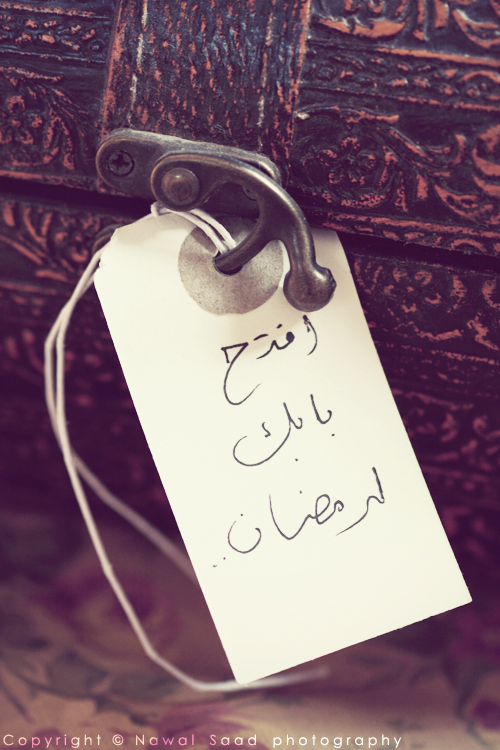 أفتح
بابك
لرمضان..
Copyright © Nawal Saad photography